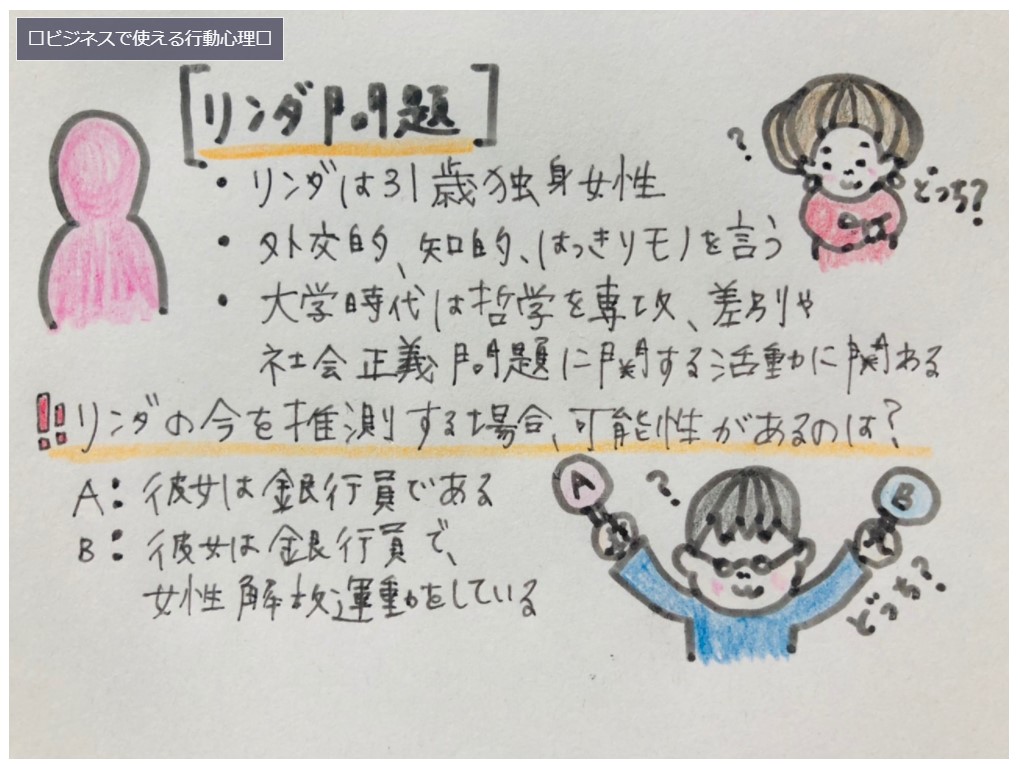 □ビジネスで使える行動心理□
[リンダ問題]
・リンダは31歳独身女性
・外交的、知的、はっきりモノを言う
・大学時代は哲学を専攻、差別や
社会正義問題に関する活動に関わる
?
どっち?
!!リンダの今を推測する場合、可能性があるのは?
A:彼女は銀行員である
B:彼女は銀行員で、
女性解放運動をしている
A
?
B
どっち?